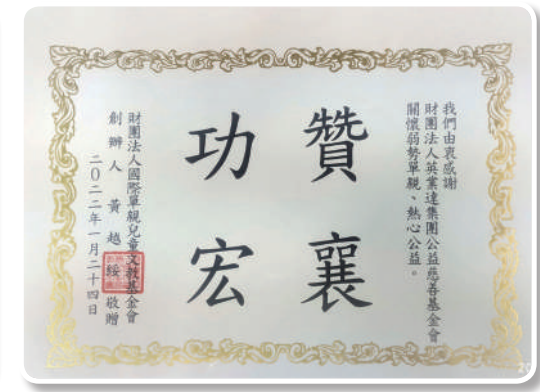 我們由衷感謝
財團法人英業達集團公益慈善基金會
關懷弱勢單親、熱心公益。
贊襄
功宏
財團法人國際單親兒童文教基金會
創辦人 黃越綏 敬贈
二〇二二年一月二十四日